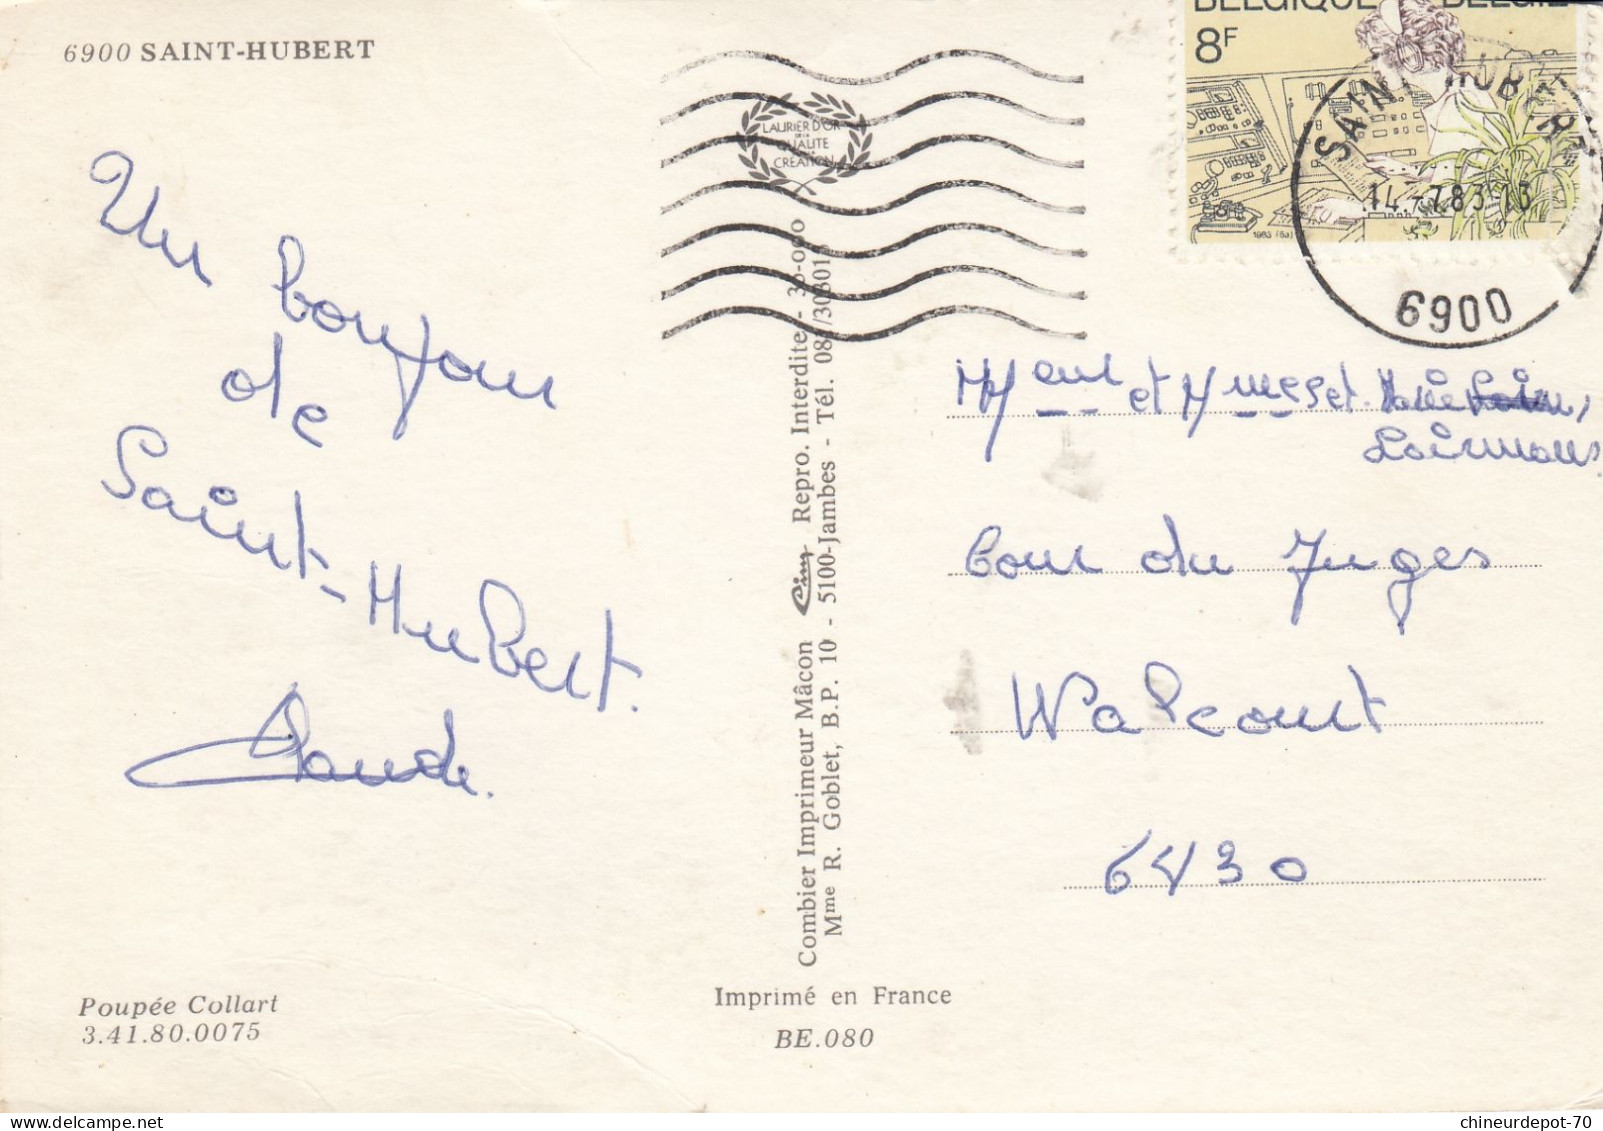 6900 SAINT-HUBERT
BELGIQUE BELGIE
8F
1983 (8a)
SAINT HUBERT
14.-7.83-13
6900
LAURIER D'OR
DE LA
QUALITE
CREATION
Un bonjour
de
Saint-Hubert.
Claude.
Combier Imprimeur Mâcon Cim Repro. Interdite - 30-000
Mme R. Goblet, B.P. 10 - 5100-Jambes - Tél. 081/30301
et
Cour du Juges
Walcourt
6430
Poupée Collart
3.41.80.0075
Imprimé en France
BE.080
chineurdepot-70